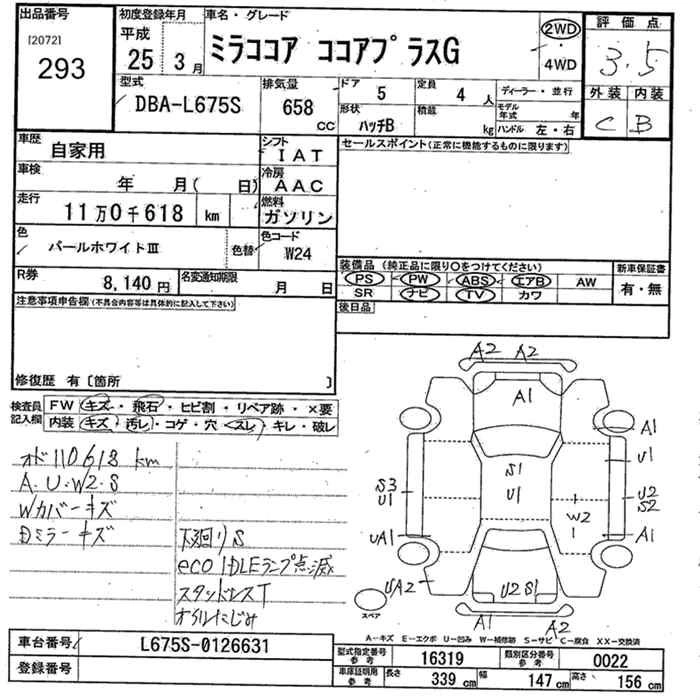 出品番号
[20721
293
初度登録年月
平成
25年3月
車名・グレード
ミラココア ココアプラスG
2WD
4WD
評価点
3.5
外装 内装
C B
型式
DBA-L675S
排気量
658
CC
ドア
5
形状
ハッチB
定員
4人
積載
kg
ディーラー・並行
モデル年式 年
ハンドル 左・右
車歴
自家用
シフト
IAT
セールスポイント(正常に機能するものに限ります)
車検
年 月( 日)
冷房
AAC
走行
11万0千618 km
燃料
ガソリン
色
パールホワイトⅢ
色替
色コード
W24
R券
8,140円
名変通知期限
月 日
装備品(純正品に限り○をつけてください)
PS PW ABS エアB AW
SR ナビ TV カワ
新車保証書
有・無
後日品
注意事項申告欄(不具合内容等は具体的に記入して下さい)
修復歴 有〔箇所 〕
検査員記入欄
FW キズ・飛石・ヒビ割・リペア跡・×要
内装 キズ・汚レ・コゲ・穴・スレ・キレ・破レ
オド110618km
A.U.W2.S
Wカバーキズ
Dミラーキズ
下廻りS
eco IDLEランプ点滅
スタッドレスT
オイルにじみ
A2 A2
A1
A1
U1
S3
U1
S1
U1
U2
S2
W2
UA1
A1
UA2
U2 S1
A1
A2
スペア
A-キズ E-エクボ U-凹み W-補修跡 S-サビ C-腐食 XX-交換済
車台番号
L675S-0126631
登録番号
型式指定番号 参考
16319
類別区分番号 参考
0022
車庫証明用 参考
長さ 339 cm
幅 147 cm
高さ 156 cm